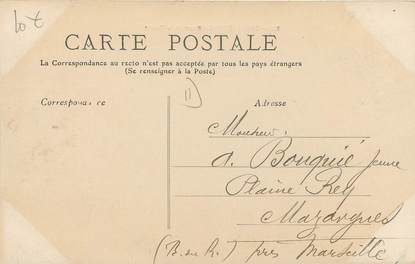 10 €
CARTE POSTALE
La Correspondance au recto n'est pas acceptée par tous les pays étrangers
(Se renseigner à la Poste)
Correspondance
Adresse
Monsieur.
A. Bouquié Jeune
Plaine Rey
Mazargues
(B. du R.) près Marseille